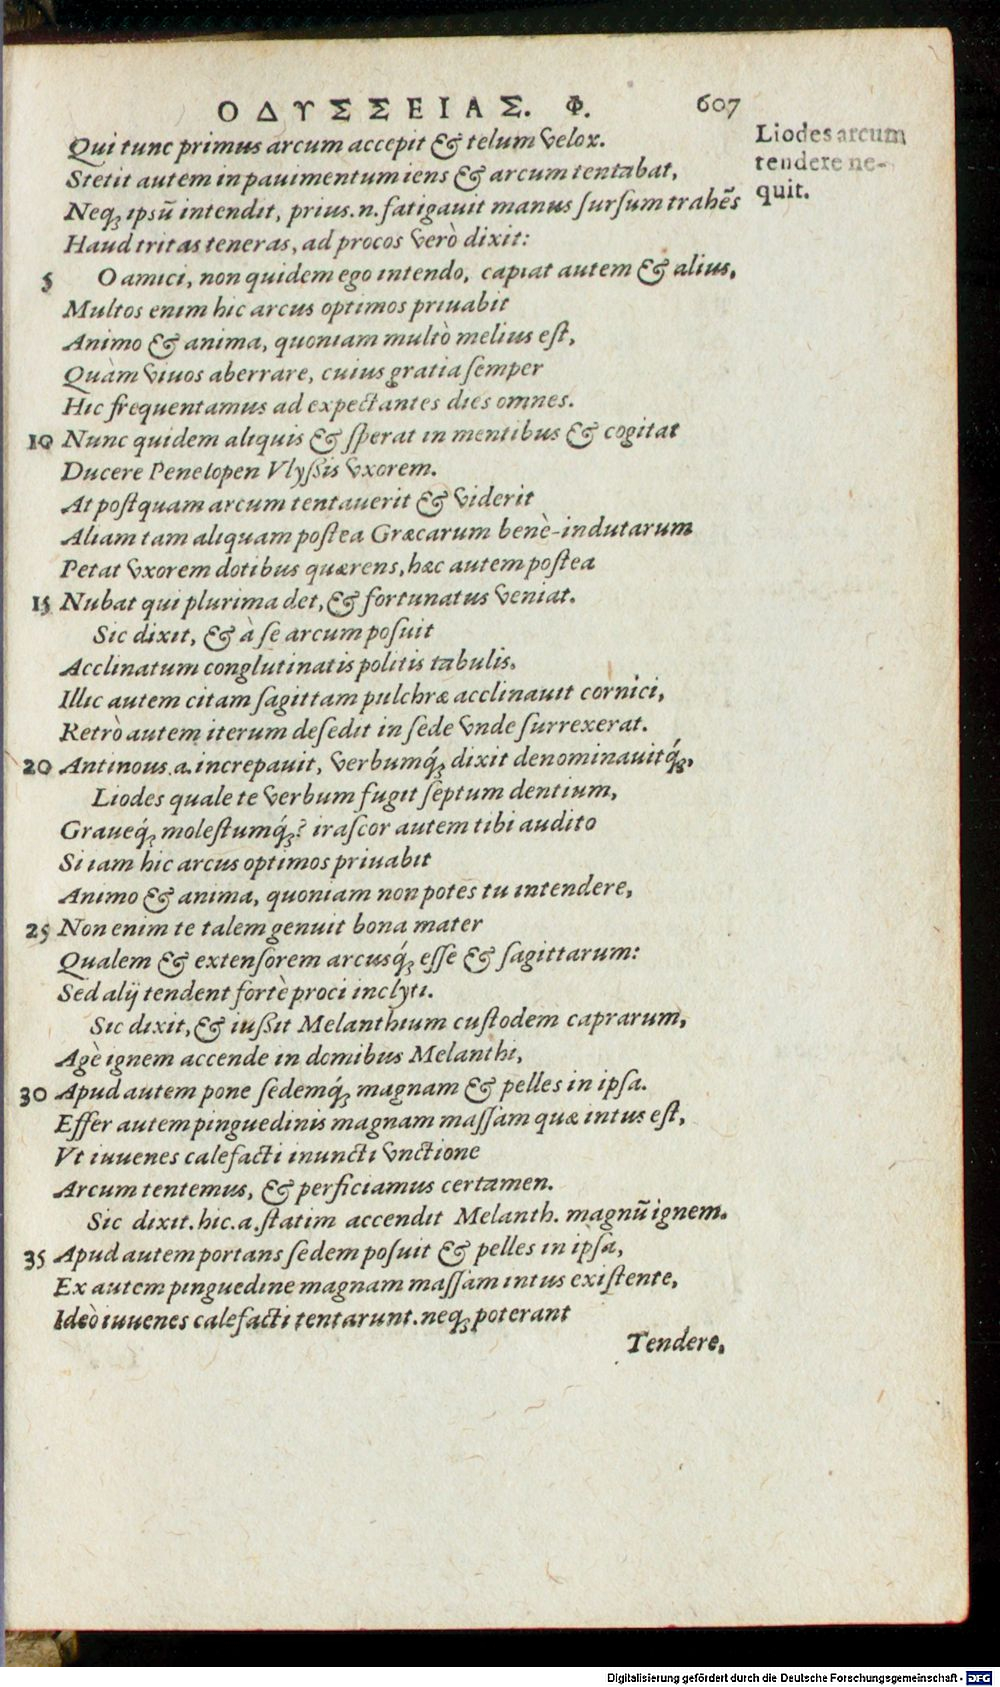 ΟΔΥΣΣΕΙΑΣ. Φ. 607
Qui tunc primus arcum accepit & telum velox.
Stetit autem in pauimentum iens & arcum tentabat,
Neq; ipsũ intendit, prius .n. fatigauit manus ſurſum trahẽs
Haud tritas teneras, ad procos verò dixit:
5 O amici, non quidem ego intendo, capiat autem & alius,
Multos enim hic arcus optimos priuabit
Animo & anima, quoniam multò melius eſt,
Quàm viuos aberrare, cuius gratia ſemper
Hic frequentamus ad expectantes dies omnes.
10 Nunc quidem aliquis & ſperat in mentibus & cogitat
Ducere Penelopen Vlyßis vxorem.
At poſtquam arcum tentauerit & viderit
Aliam tam aliquam poſtea Græcarum benè-indutarum
Petat vxorem dotibus quærens, hæc autem poſtea
15 Nubat qui plurima det, & fortunatus veniat.
Sic dixit, & à ſe arcum poſuit
Acclinatum conglutinatis politis tabulis.
Illic autem citam ſagittam pulchræ acclinauit cornici,
Retrò autem iterum deſedit in ſede vnde ſurrexerat.
20 Antinous .a. increpauit, verbumq́; dixit denominauitq́;,
Liodes quale te verbum fugit ſeptum dentium,
Graueq́; moleſtumq́;? iraſcor autem tibi audito
Si iam hic arcus optimos priuabit
Animo & anima, quoniam non potes tu intendere,
25 Non enim te talem genuit bona mater
Qualem & extenſorem arcusq́; eſſe & ſagittarum:
Sed alij tendent fortè proci inclyti.
Sic dixit, & iußit Melanthium cuſtodem caprarum,
Agè ignem accende in domibus Melanthi,
30 Apud autem pone ſedemq́; magnam & pelles in ipſa.
Effer autem pinguedinis magnam maſſam quæ intus eſt,
Vt iuuenes calefacti inuncti vnctione
Arcum tentemus, & perficiamus certamen.
Sic dixit. hic .a. ſtatim accendit Melanth. magnũ ignem.
35 Apud autem portans ſedem poſuit & pelles in ipſa,
Ex autem pinguedine magnam maſſam intus exiſtente,
Ideò iuuenes calefacti tentarunt. neq; poterant
Tendere,
Liodes arcum
tendere ne-
quit.
Digitalisierung gefördert durch die Deutsche Forschungsgemeinschaft - DFG